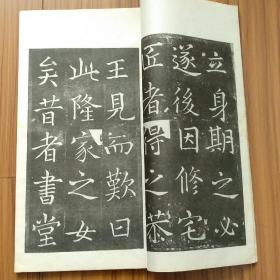 立身期之必
遂後因修宅
匠者得之恭
王見而歎曰
此隆家之女
矣昔者書堂